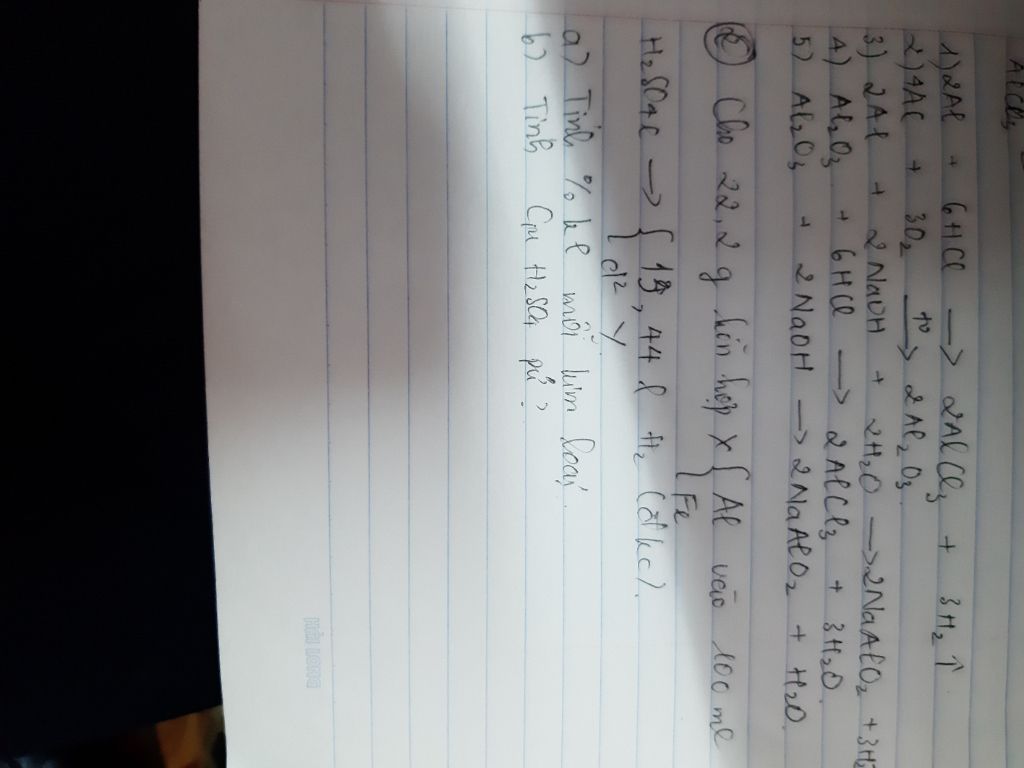 AlCl3
1) 2Al + 6HCl → 2AlCl3 + 3H2 ↑
2) 4Al + 3O2 t° → 2Al2O3.
3) 2Al + 2NaOH + 2H2O → 2NaAlO2 + 3H2
4) Al2O3 + 6HCl → 2AlCl3 + 3H2O.
5) Al2O3 + 2NaOH → 2NaAlO2 + H2O.
② Cho 22,2 g hỗn hợp X { Al vào 100 ml
Fe
H2SO4l → { 13,44 l H2 (đkc).
d² Y
a) Tính % kl mỗi kim loại.
b) Tính CM H2SO4 pứ?
HẢI LONG